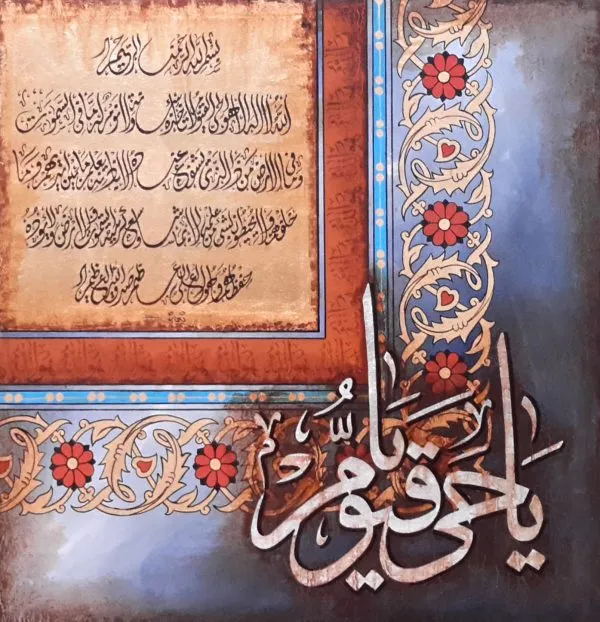 بسم الله الرحمن الرحيم
الله لا اله الا هو الحي القيوم لا تأخذه سنة ولا نوم له ما في السموات
وما في الارض من ذا الذي يشفع عنده الا باذنه يعلم ما بين ايديهم وما
خلفهم ولا يحيطون بشئ من علمه الا بما شاء وسع كرسيه السموات والارض ولا يؤده
حفظهما وهو العلي العظيم صدق الله العظيم
يَا حَيُّ يَا قَيُّومُ